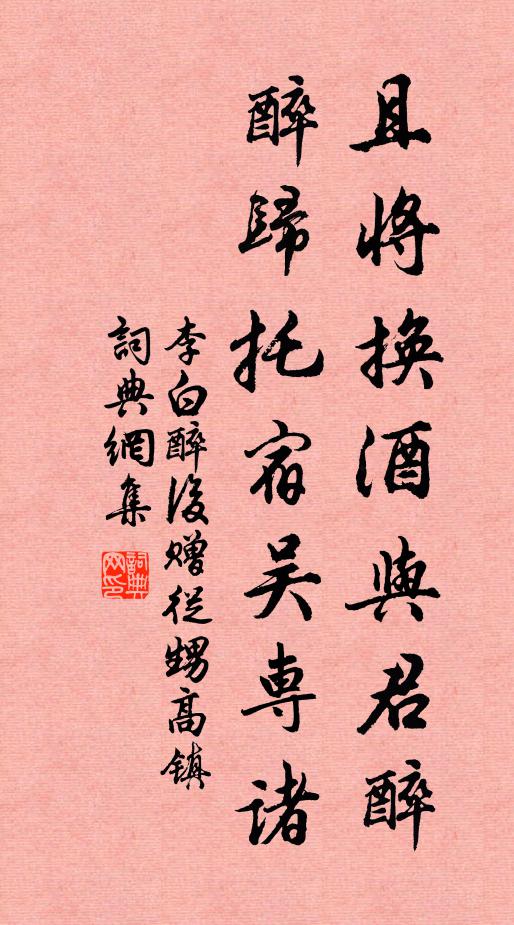 且将換酒與君醉
醉歸托宿吴專諸
李白醉後贈從甥高镇
詞典網集
詞典网印